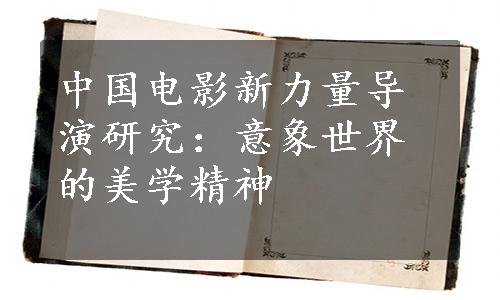 中国电影新力量导
演研究：意象世界
的美学精神